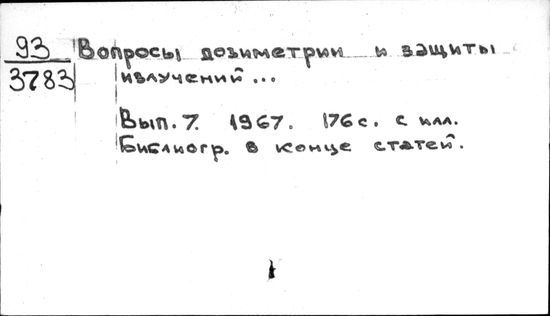 93 Вопросы дозиметрии и защиты
3783 излучений...
Вып. 7. 1967. 176 с. с илл.
Библиогр. в конце статей.